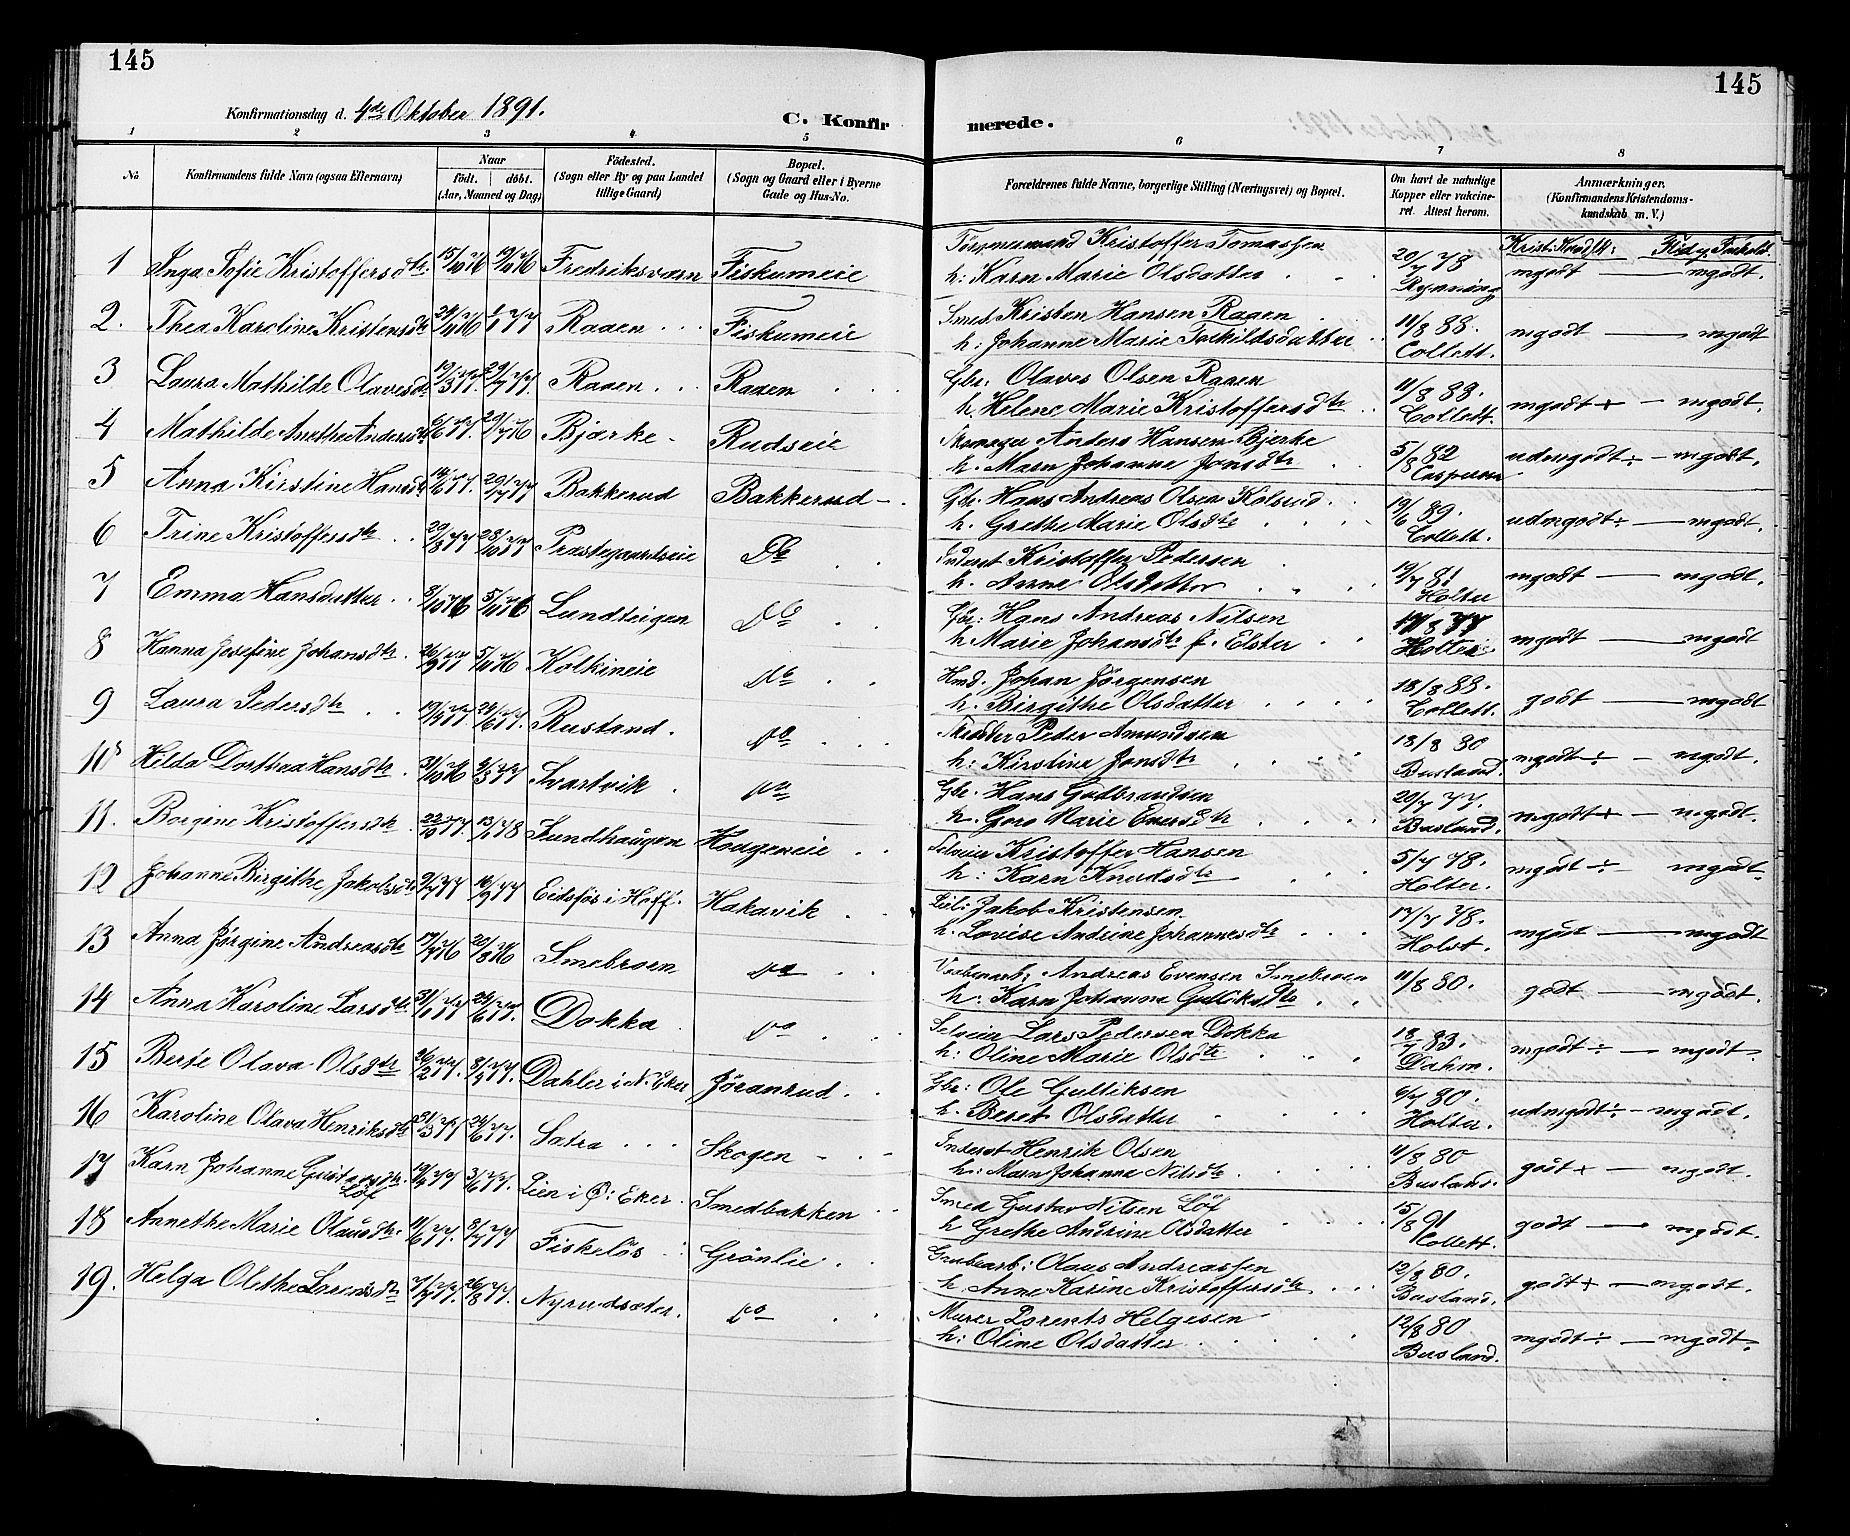 145
145
Konfirmationsdag d. 4de Oktober 1891.
C. Konfir
merede.
1 2 3 4 5 6 7 8
No
Konfirmandens fulde Navn (ogsaa Efternavn)
Naar
födt. döbt.
(Aar, Maaned og Dag)
Födested.
(Sogn eller By og paa Landet tillige Gaard)
Bopæl.
(Sogn og Gaard eller i Byerne Gade og Hus-No.
Forældrenes fulde Navne, borgerlige Stilling (Næringsvei) og Bopæl.
Om havt de naturlige Kopper eller vakcineret. Attest herom.
Anmærkninger.
(Konfirmandens Kristendomskundskab m. V.)
1 Inga Sofie Kristoffersdtr. 15/10 76 19/11 76 Fredriksværn Fiskumeie Tömmermand Kristoffer Tomassen
h: Karn Marie Olsdatter 20/7 78 Rynning mgodt — mgodt.
2. Thea Karoline Kristensdtr 1/1 77 Raaen Fiskumeie Smed Kristen Hansen Raaen
h: Johanne Marie Torkildsdatter 11/8 88. Collett. mgodt — mgodt
3 Laura Mathilde Olavesdtr 19/3 77. 29/7 77. Raaen Raaen Gbr: Olaves Olsen Raaen
h. Helene Marie Kristoffersdtr 11/8 88. Collett. mgodt + — mgodt.
4 Mathilde Anethe Andersdtr Bjærke Rudseie Anders Hansen Bjerke
h. Maren Johanne Jonsdtr 5/8 82 Caspersen udmgodt ÷ — mgodt.
5 Anna Kirstine Hansdtr 14/6 77. 29/7 77 Bakkerud Bakkerud Gbr. Hans Andreas Olsen Kolsrud
h. Grethe Marie Olsdtr 19/6 89. Collett. udmgodt ÷ — mgodt.
6 Trine Kristoffersdtr 29/8 77 28/10 77 Prestegaardseie Do Inderst Kristoffer Pedersen
h. Anne Olsdatter 19/7 81 Holter mgodt — mgodt.
7 Emma Hansdatter 8/10 76 5/10 76 Lundteigen Do Hans Andreas Nilsen
h Marie Johansdtr f. Elster 17/8 77 Holter mgodt — mgodt
8 Hanna Josefine Johansdtr. 26/9 77 5/10 76 Kolkineie Do Hmd. Johan Jörgensen
h. Birgithe Olsdatter 18/8 88. Collett. godt — mgodt
9 Laura Pedersdtr 19/4 77 24/6 77. Rustand. Do Peder Amundsen
h: Kirstine Jonsdtr 18/8 80 Busland. mgodt ÷ — mgodt.
10 Hilda Dorthea Hansdtr 31/10 76 9/3 77 Svartvik Do Gbr. Hans Gudbrandsen
h. Goro Marie Eversdtr 20/7 77. Busland. mgodt + — mgodt.
11. Borgine Kristoffersdtr. 22/10 77. 13/1 78 Lundhaugen Hougeneie Selveier Kristoffer Hansen
h: Karn Knudsdtr 5/7 78. Holter. mgodt ÷ — mgodt.
12 Johanne Birgithe Jakobsdtr 9/7 77 16/9 77 Eidsfos i Hoff. Hakavik Jakob Kristensen
h. Lovise Andrine Johannesdtr 17/7 78. Holst. mgodt — mgodt
13 Anna Jörgine Andreasdtr 17/7 76 20/8 76 Smebroen Do Andreas Evensen Smebroen
h. Karn Johanna Gulliksdtr 11/8 80. godt — mgodt.
14 Anna Karoline Larsdtr. 31/1 77 24/6 77. Dokka Do Selveier Lars Pedersen Dokka
h: Oline Marie Olsdtr 18/7 83. Dahm. mgodt ÷ — mgodt.
15 Berte Olava Olsdtr 26/2 77. 8/4 77. Dahler i N. Eker Jöranrud Gbr: Ole Gulliksen
h. Beret Olsdatter 6/7 80. Holter. udmgodt ÷ — mgodt.
16 Karoline Olava Henriksdtr 31/3 77 24/6 77. Satra Skogen Inderst Henrik Olsen
h. Maren Johanne Nilsdtr 11/8 80 Busland. godt + — mgodt.
17 Karn Johanne Gustavsdtr. Löf 19/4 77 3/6 77. Lien i Ö: Eker. Smedbakken Smed Gustav Nilsen Löf
h Grethe Andrine Olsdatter 15/8 91 Collett. godt — mgodt.
18 Annethe Marie Olausdtr. 11/6 77. 8/7 77 Fiskelös Grönlie Grubearb: Olaus Andreassen
h. Anne Karine Kristoffersdtr 12/8 80. Busland. godt + — mgodt.
19. Helga Olethe Lorensdtr 7/7 77. 26/8 77. Nyrudsæter. Do Murer Lorents Helgesen
h: Oline Olsdatter 12/8 80 Busland. mgodt ÷ — mgodt.